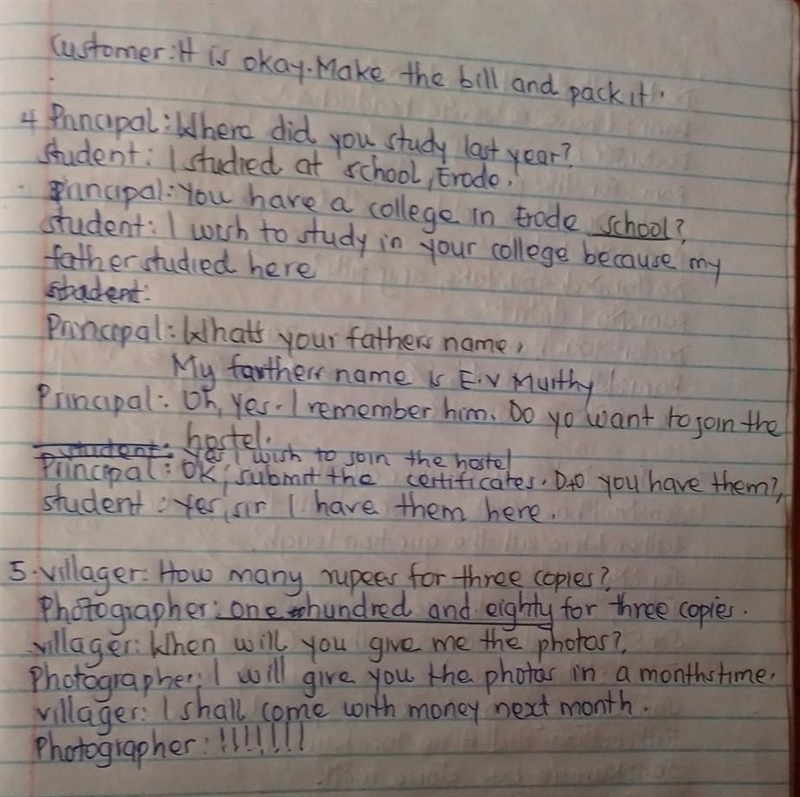 Customer: It is okay. Make the bill and pack it.
4 Principal: Where did you study last year?
Student: I studied at school, Erode.
Principal: You have a college in Erode school?
Student: I wish to study in your college because my
father studied here
student:
Principal: Whats your fathers name,
My farthers name is E.V Murthy
Principal: Oh, yes. I remember him. Do yo want to join the
hostel.
student: Yes I wish to join the hostel
Principal: OK, submit the certificates. Do you have them?,
student: Yes, sir I have them here.
5. Villager: How many rupees for three copies?
Photographer: one hundred and eighty for three copies.
villager: When will you give me the photos?,
Photographer: I will give you the photos in a months time.
villager: I shall come with money next month.
Photographer: !!!!!!!